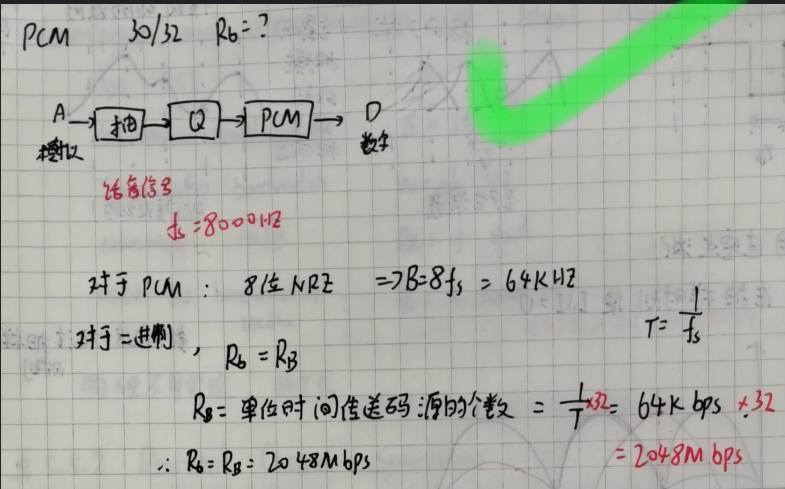 PCM 30/32 Rb=?
A → 抽 → Q → PCM → D
模拟 数字
话音信号
fs=8000HZ
对于 PCM: 8位NRZ => B=8fs = 64KHZ
T=1/fs
对于二进制, Rb = RB
RB= 单位时间传送码源的个数 = 1/T ×32 = 64K bps ×32
= 2048M bps
∴ Rb=RB= 2048Mbps